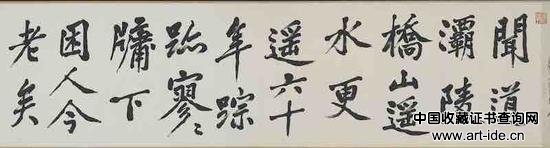 聞道
灞陵
橋山遥
水更
遥六十
年踪
跡寥〻
牖下
困人今
老矣
中国收藏证书查询网
www.art-ide.cn